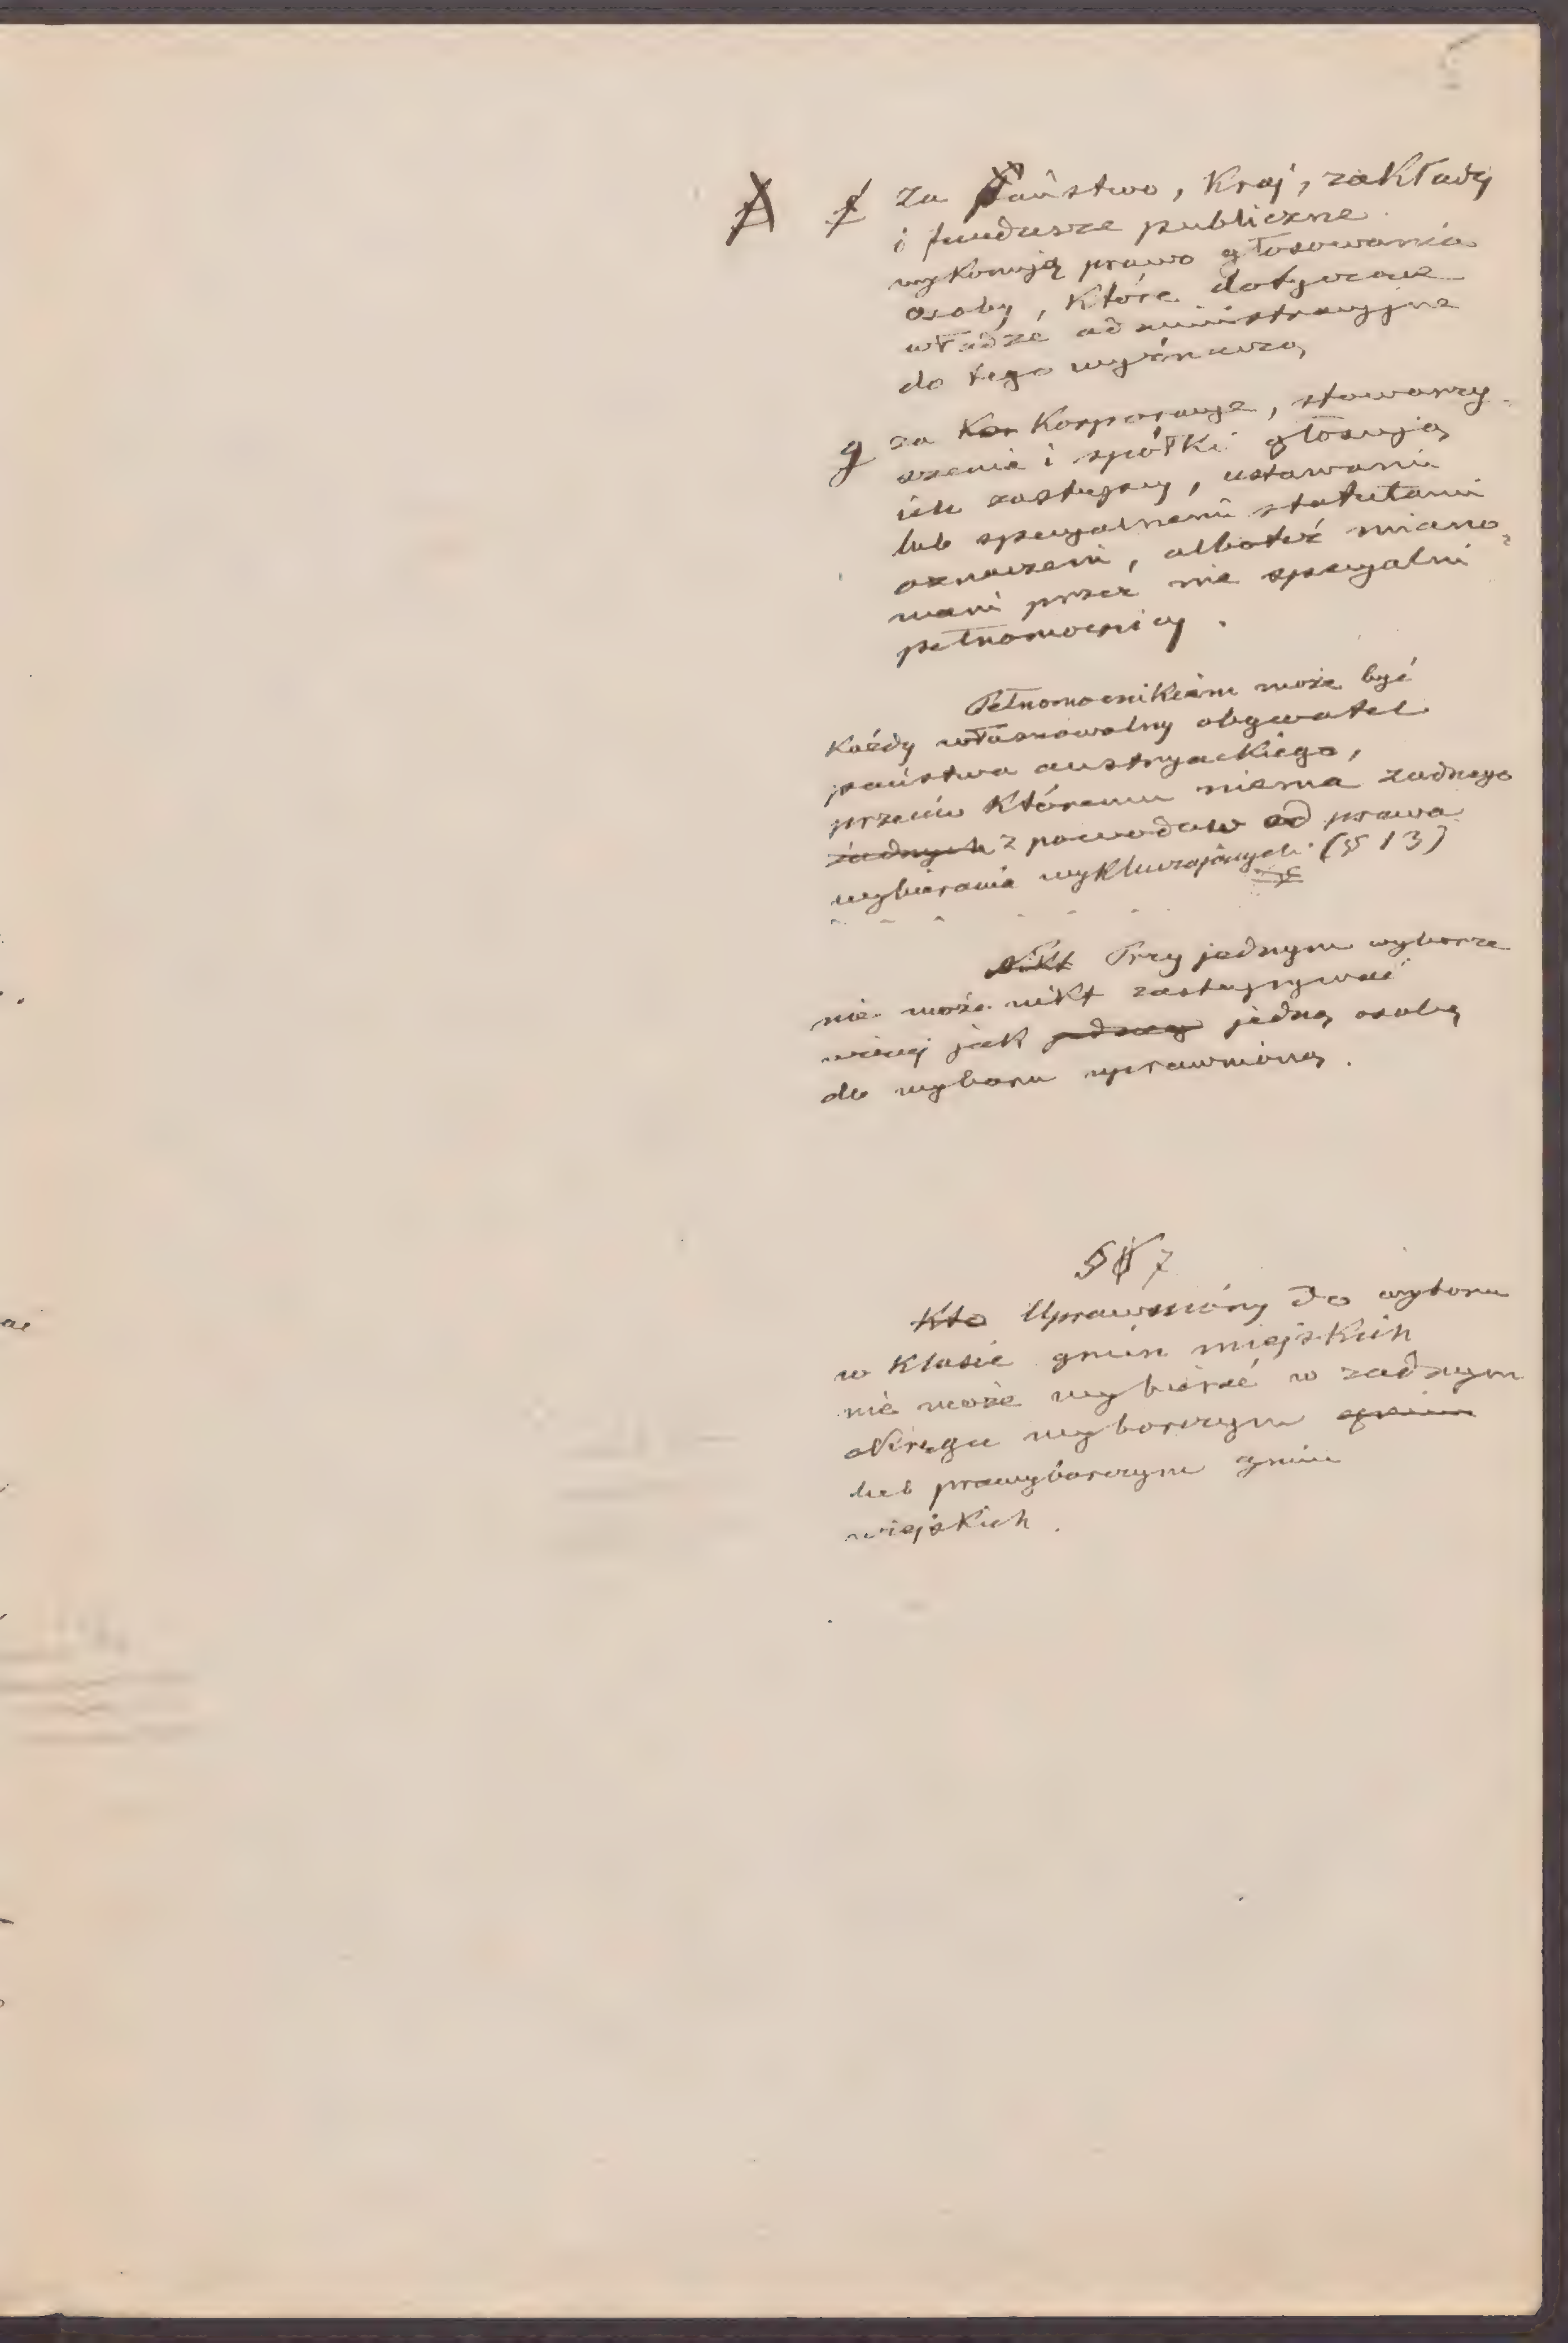 f za Państwo, Kraj, zakłady
i fundusze publiczne
wykonują prawo głosowania
osoby, które dotyczące
władze administracyjne
do tego wyznaczą
g za Kor Korporacye, stowarzy-
szenia i spółki głosują
ich zastępcy, ustawami
lub specyalnemi statutami
oznaczeni, alboteż miano-
wani przez nie specyalni
pełnomocnicy.
Pełnomocnikiem może być
Każdy własnowolny obywatel
państwa austryackiego,
przeciw któremu niema żadnego
żadnych z powodów od prawa
wybierania wykluczających (§ 13)
Nikt Przy jednym wyborze
nie może nikt zastępywać
więcej jak jednej jedną osobę
do wyboru uprawnioną.
§ 7
Kto Uprawniony do wyboru
w Klasie gmin miejskich
nie może wybierać w żadnym
okręgu wyborczym gmin
lub prawyborczym gmin
wiejskich.